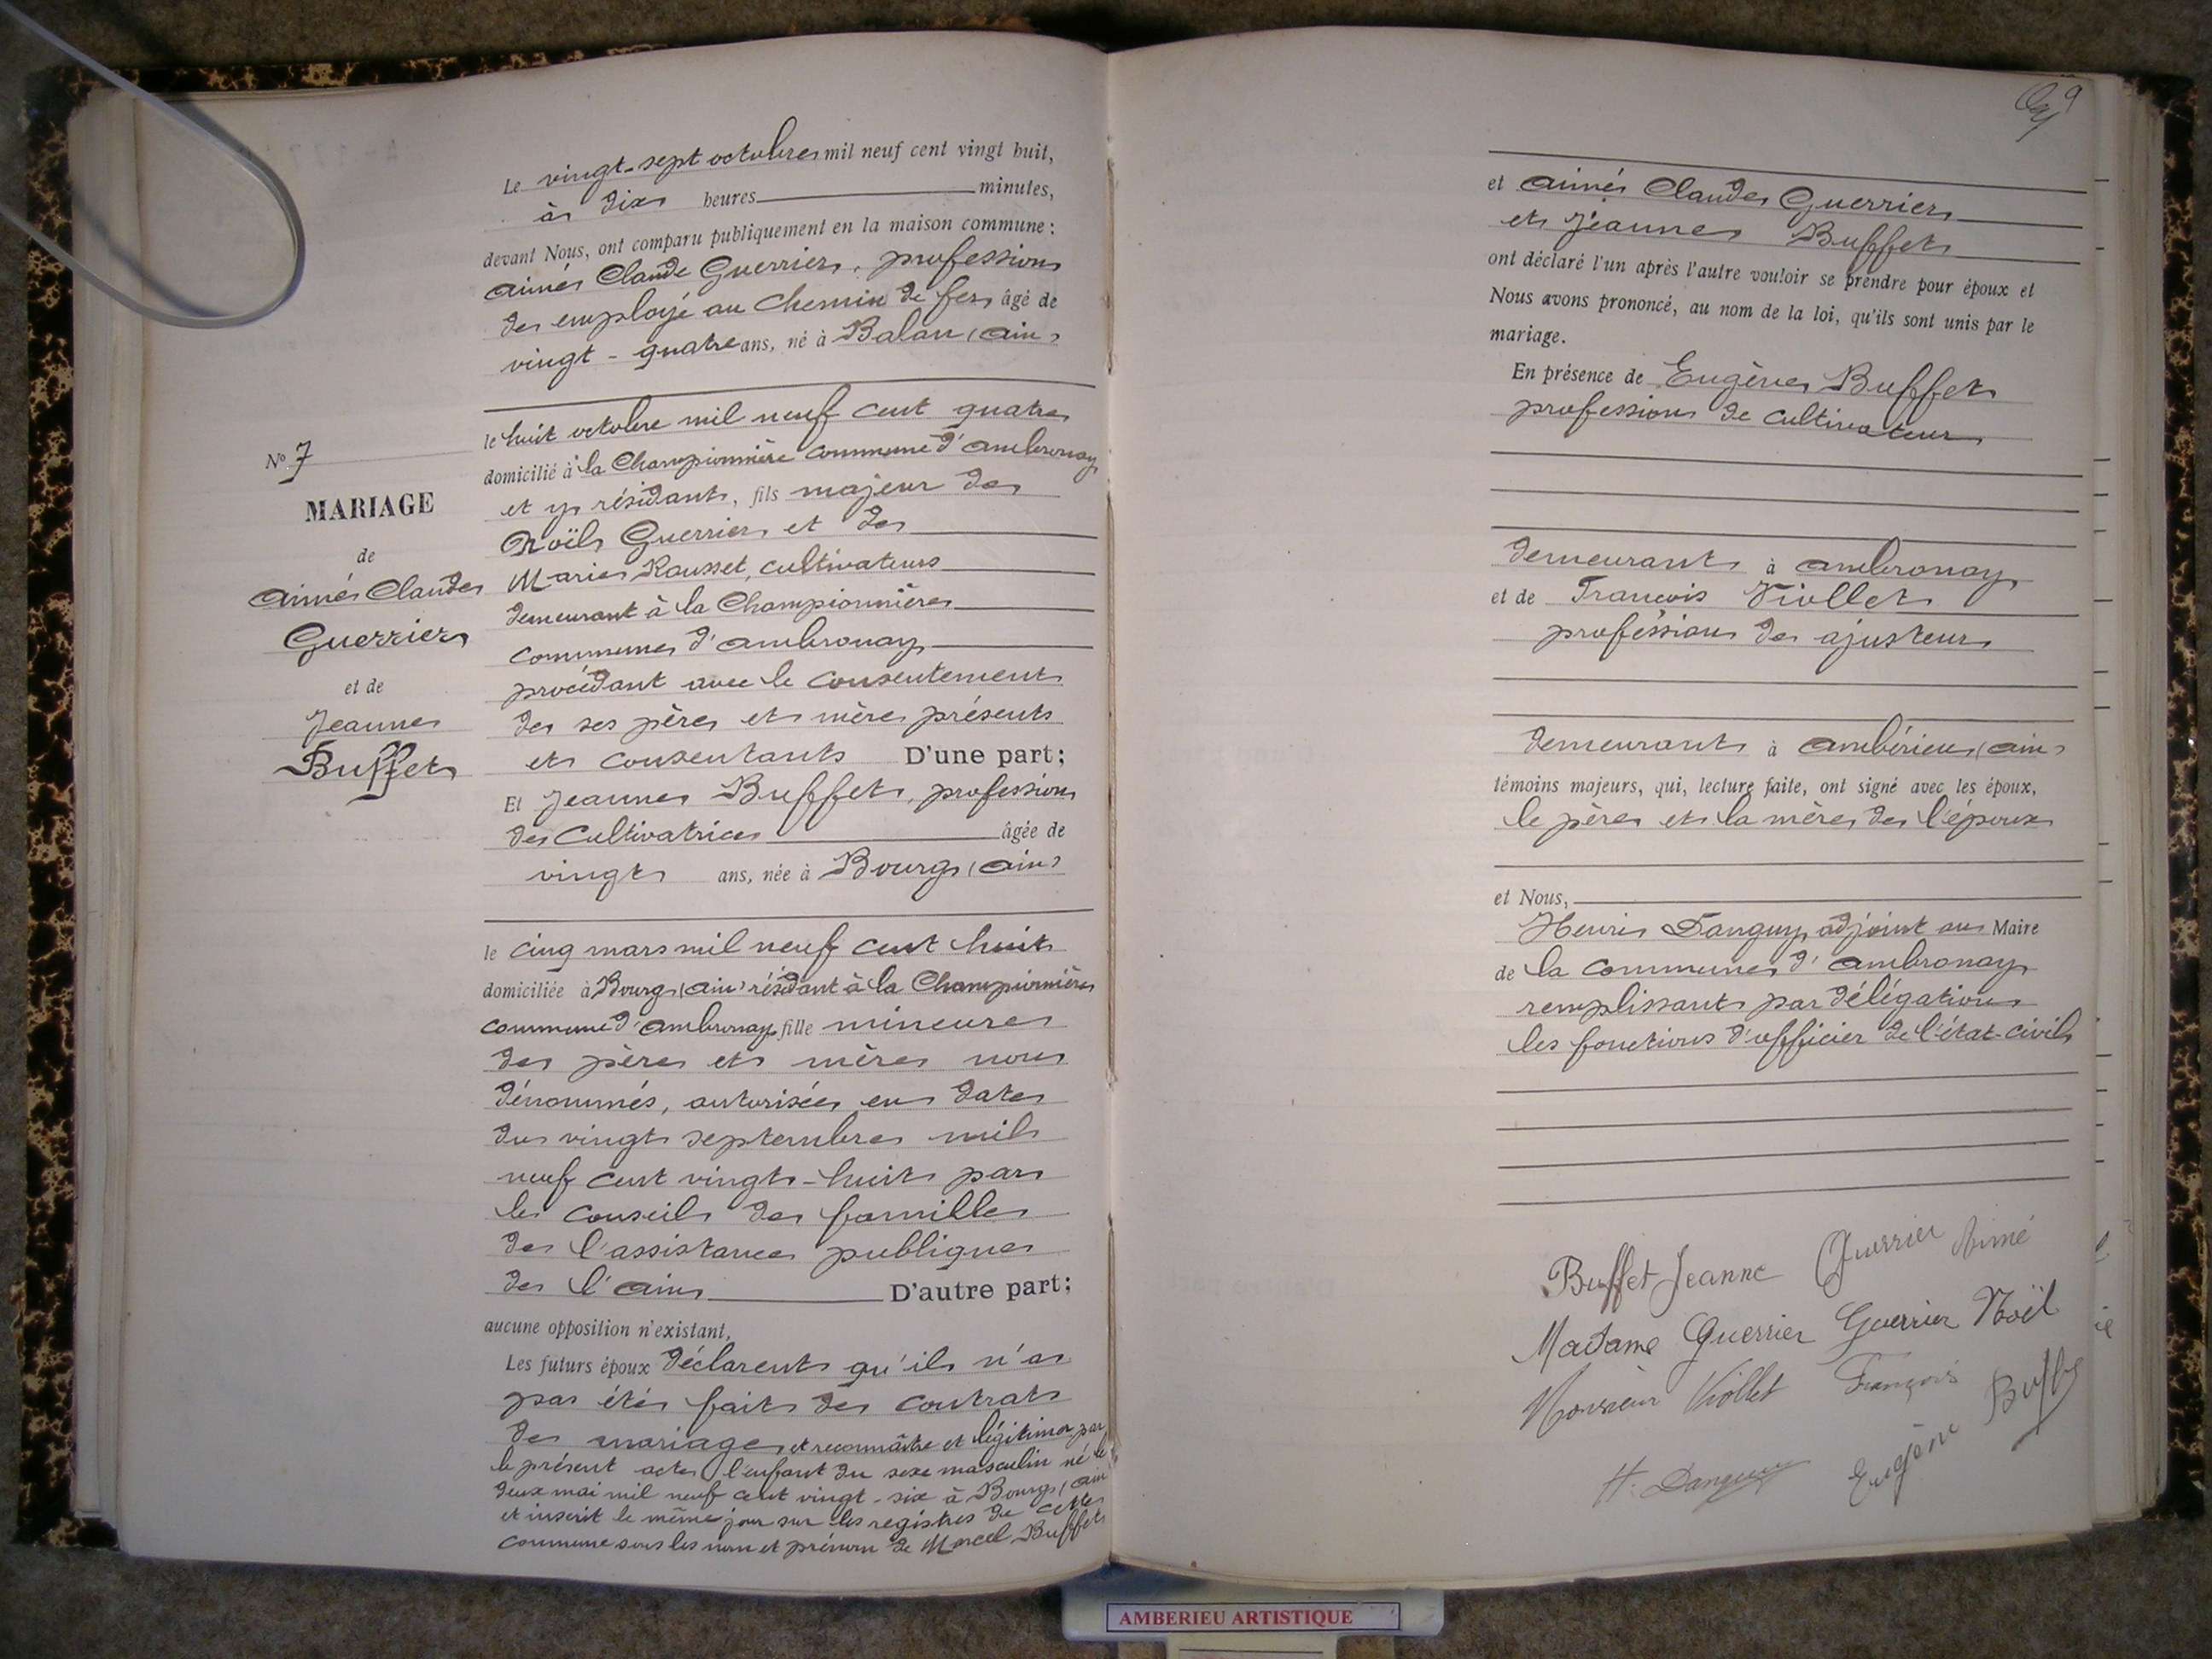 Le vingt-sept octobre mil neuf cent vingt huit,
à dix heures minutes,
devant Nous, ont comparu publiquement en la maison commune :
Aimé Claude Guerrier, profession
de employé au Chemin de fer, âgé de
vingt-quatre ans, né à Balan (Ain)
le huit octobre mil neuf cent quatre
domicilié à la Championnière commune d'Ambronay
et y résidant, fils majeur de
Noël Guerrier et de
Marie Rousset, cultivateurs
demeurant à la Championnière
commune d'Ambronay
procédant avec le consentement
de ses père et mère présents
et consentants D'une part;
Et Jeanne Buffet, profession
de Cultivatrice âgée de
vingt ans, née à Bourg (Ain)
le cinq mars mil neuf cent huit
domiciliée à Bourg (Ain) résidant à la Championnière
commune d'Ambronay fille mineure
de père et mère non
dénommés, autorisée en date
du vingt septembre mil
neuf cent vingt-huit par
le conseil de famille
de l'assistance publique
de l'Ain D'autre part;
aucune opposition n'existant,
Les futurs époux déclarent qu'il n'a
pas été fait de contrat
de mariage et reconnaître et légitimer par
le présent acte l'enfant du sexe masculin né le
deux mai mil neuf cent vingt-six à Bourg (Ain
et inscrit le même jour sur les registres de cette
commune sous les nom et prénom de Marcel Buffet
N° 7
MARIAGE
de
Aimé Claude
Guerrier
et de
Jeanne
Buffet
9
et Aimé Claude Guerrier
et Jeanne Buffet
ont déclaré l'un après l'autre vouloir se prendre pour époux et
Nous avons prononcé, au nom de la loi, qu'ils sont unis par le
mariage.
En présence de Eugène Buffet
profession de cultivateur
demeurant à Ambronay
et de François Viollet
profession de ajusteur
demeurant à Ambérieu (Ain)
témoins majeurs, qui, lecture faite, ont signé avec les époux,
le père et la mère de l'époux
et Nous,
Henri Danguy, adjoint au Maire
de la commune d'Ambronay
remplissant par délégation
les fonctions d'officier de l'état-civil
Buffet Jeanne Guerrier Aimé
Madame Guerrier Guerrier Noël
Monsieur Viollet François
Eugène Buffet
H. Danguy
AMBERIEU ARTISTIQUE